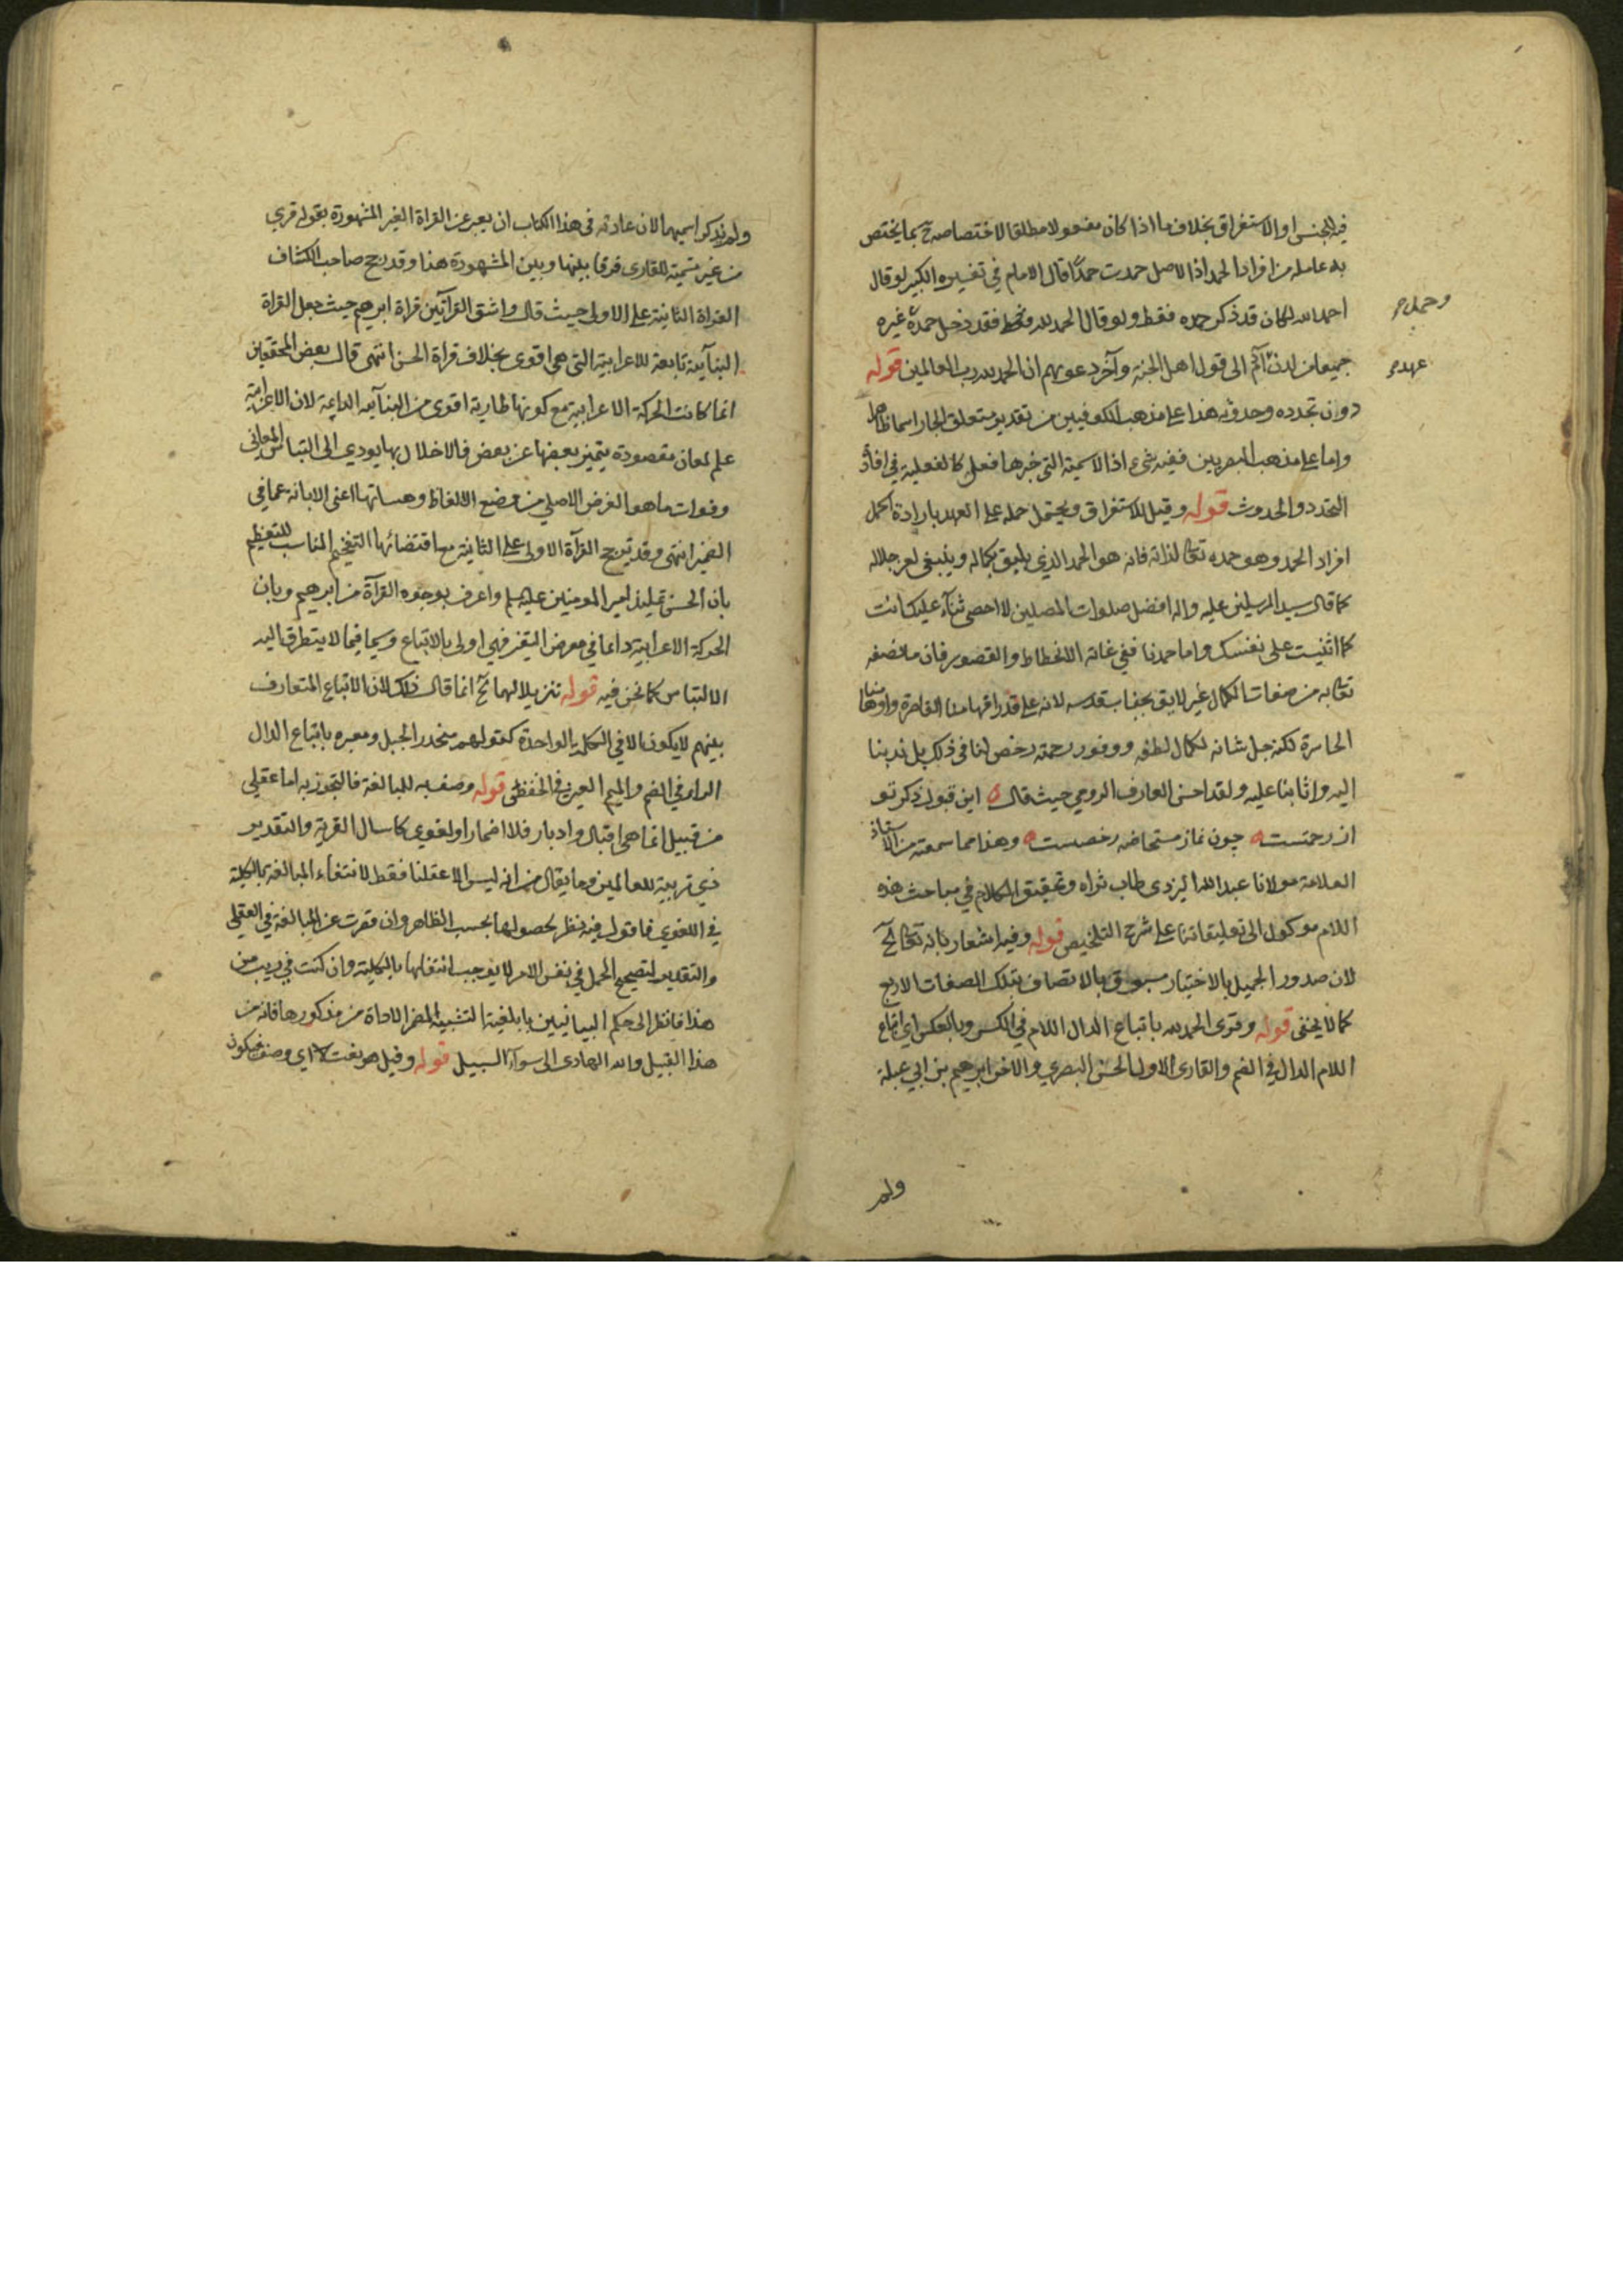 فيه الجنس او الاستغراق بخلاف ما اذا كان مفعولا مطلقا لاختصاصه ح بما يختص
به عامله من افراد الحمد اذ الاصل حمدت حمدًا قال الامام في تفسيره الكبير لو قال
احمد الله لكان قد ذكر حمده فقط ولو قال الحمد لله فقد دخل حمده غيره
وحمد
جميعا من لدن آدم الى قول اهل الجنة وآخر دعويهم ان الحمد لله رب العالمين قوله
عهد
دون تجدده وحدوثه هذا على مذهب الكوفيين من تقدير متعلق الجار اسما ظاهر
واما على مذهب البصريين ففيه شيء اذ الاسمية التي خبرها فعل كالفعلية في افادة
التجدد والحدوث قوله وقيل للاستغراق ويحتمل حمله على العهد بارادة اكمل
افراد الحمد وهو حمده تعالى لذاته فانه هو الحمد الذي يليق بكماله وينبغي لعز جلاله
كما قال سيد المرسلين عليه واله افضل صلوات المصلين لا احصي ثناء عليك انت
كما اثنيت على نفسك واما حمدنا ففي غاية الانحطاط والقصور فان ما نصفه
تعالى به من صفات الكمال غير لايق بجناب قدسه لانه على قدر افهامنا القاصرة واوهامنا
الحاسرة لكنه جل شانه لكمال لطفه ووفور رحمته رخص لنا في ذلك بل ندبنا
اليه واثابنا عليه ولقد احسن العارف الرومي حيث قال این قبول ذکر تو
از رحمتست چون نماز مستحاضه رخصتست وهذا مما سمعته من الاستاذ
العلامة مولانا عبد الله اليزدي طاب ثراه وتحقيق الكلام في مباحث هذه
اللام موكول الى تعليقاتنا على شرح التلخيص قوله وفيه اشعار بانه تعالى آلخ
لان صدور الجميل بالاختيار مسبوق بالاتصاف بتلك الصفات الاربع
كما لا يخفى قوله وقرى الحمد لله باتباع الدال اللام في الكسر وبالعكس اي اتباع
اللام الدال في الضم والقارى الاول الحسن البصري والاخر ابرهيم بن ابي عبلة
ولم
ولم يذكر اسميهما لان عادته في هذا الكتاب ان يعبر عن القراة الغير المشهورة بقوله قري
من غير تسمية للقارى فرقا بينها وبين المشهورة هذا وقد رجح صاحب الكشاف
القراة الثانية على الاولى حيث قال واشق القرآتين قراة ابرهيم حيث جعل القراة
البنآئية تابعة للاعرابية التي هي اقوى بخلاف قراة الحسن انتهى قال بعض المحققين
انما كانت الحركة الاعرابية مع كونها طارية اقوى من البنآئية الدايمة لان الاعرابية
علم لمعان مقصودة يتميز بعضها عن بعض فالاخلال بها يودي الى التباس المعاني
وفوات ما هو الغرض الاصلي من وضع الالفاظ وهيئاتها اعني الابانة عما في
الضمير انتهى وقد ترجح القرآة الاولى على الثانية مع اقتضائها التفخيم المناسب للتعظيم
بان الحسن تلميذ امير المومنين عليه السلم واعرف بوجوه القرآة من ابرهيم وبان
الحركة الاعرابية دائما في معرض التغير فهي اولى بالاتباع وسيما فيما لا يتطرق اليه
الالتباس كما نحن فيه قوله تنزيلا لهما آلخ انما قال ذلك لان الاتباع المتعارف
بينهم لا يكون الا في الكلمة الواحدة كقولهم منحدر الجبل ومغيره باتباع الدال
الراء في الضم والميم الغين في الخفض قوله وصف به للمبالغة فالتجوز به اما عقلي
من قبيل انما هي اقبال وادبار فلا اضمار او لغوي كاسال القرية والتقدير
ذي تربية للعالمين وما يقال من انه ليس الا عقلنا فقط لانتفاء المبالغة بالكلية
في اللغوي فاقول فيه نظر لحصولها بحسب الظاهر وان قصرت عن المبالغة في العقلي
والتقدير لتصحيح الحمل في نفس الامر لا يوجب انتفاءها بالكلية وان كنت في ريب من
هذا فانظر الى حكم البيانيين بابلغية التشبيه المضمر الاداة من مذكورها فانه من
هذا القبيل والله الهادي الى سوآء السبيل قوله وقيل هو نعت اي وصف فيكون